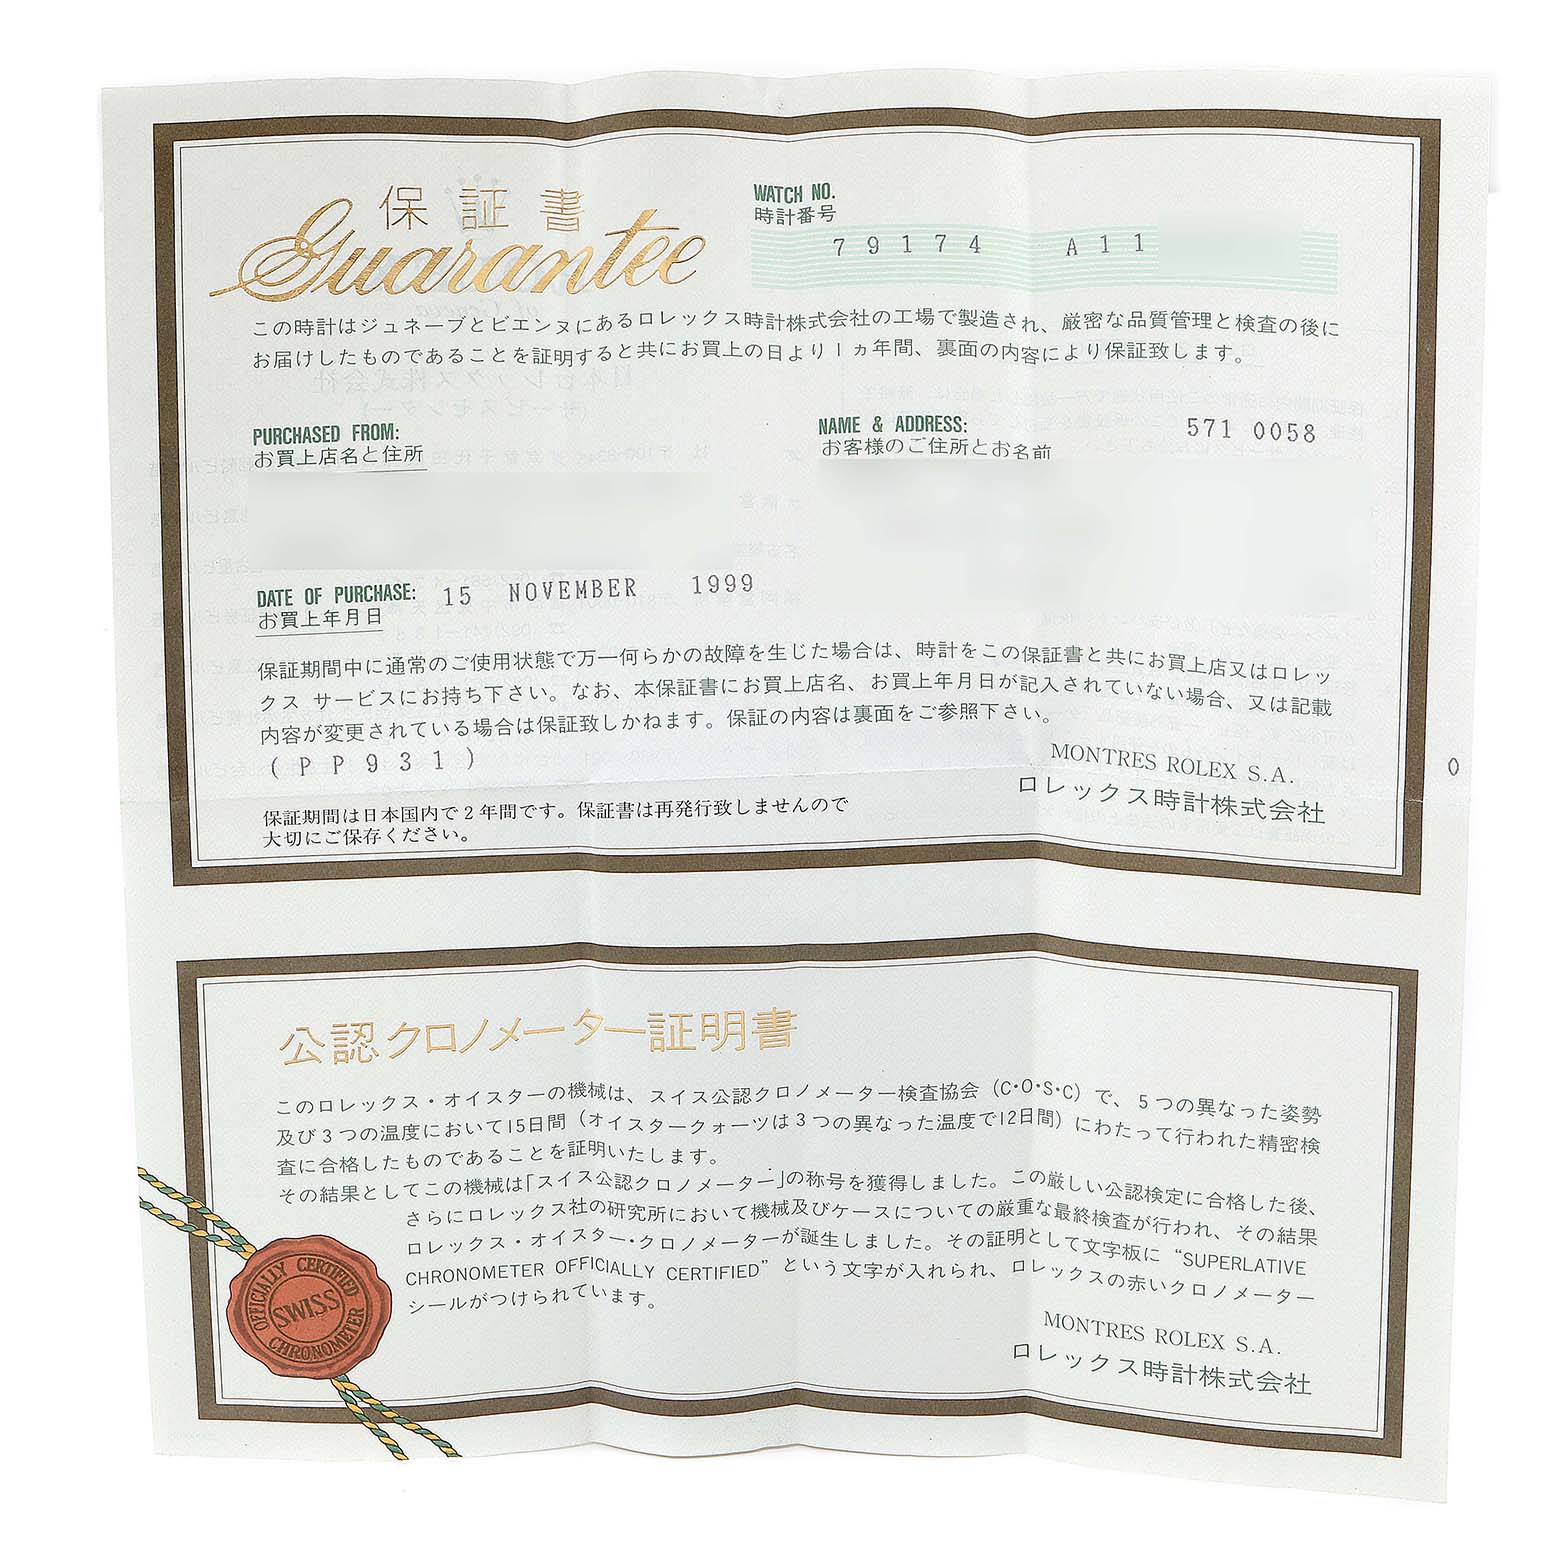 保証書
Guarantee
WATCH NO.
時計番号
79174 A11
この時計はジュネーブとビエンヌにあるロレックス時計株式会社の工場で製造され、厳密な品質管理と検査の後に
お届けしたものであることを証明すると共にお買上の日より1ヵ年間、裏面の内容により保証致します。
PURCHASED FROM:
お買上店名と住所
NAME & ADDRESS:
お客様のご住所とお名前
571 0058
DATE OF PURCHASE: 15 NOVEMBER 1999
お買上年月日
保証期間中に通常のご使用状態で万一何らかの故障を生じた場合は、時計をこの保証書と共にお買上店又はロレッ
クス サービスにお持ち下さい。なお、本保証書にお買上店名、お買上年月日が記入されていない場合、又は記載
内容が変更されている場合は保証致しかねます。保証の内容は裏面をご参照下さい。
(PP931)
MONTRES ROLEX S.A.
ロレックス時計株式会社
0
保証期間は日本国内で2年間です。保証書は再発行致しませんので
大切にご保存ください。
公認クロノメーター証明書
このロレックス・オイスターの機械は、スイス公認クロノメーター検査協会(C・O・S・C)で、5つの異なった姿勢
及び3つの温度において15日間(オイスタークォーツは3つの異なった温度で12日間)にわたって行われた精密検
査に合格したものであることを証明いたします。
その結果としてこの機械は「スイス公認クロノメーター」の称号を獲得しました。この厳しい公認検定に合格した後、
さらにロレックス社の研究所において機械及びケースについての厳重な最終検査が行われ、その結果
ロレックス・オイスター・クロノメーターが誕生しました。その証明として文字板に “SUPERLATIVE
CHRONOMETER OFFICIALLY CERTIFIED” という文字が入れられ、ロレックスの赤いクロノメーター
シールがつけられています。
MONTRES ROLEX S.A.
ロレックス時計株式会社
OFFICIALLY CERTIFIED
SWISS
CHRONOMETER